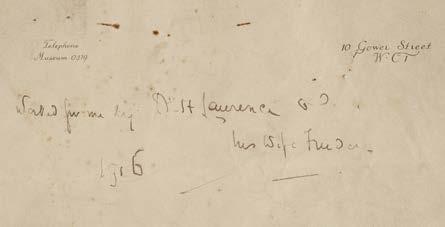 Telephone
Museum 0219
10 Gower Street
W.C.1
Worked for me by D. H Lawrence &
his Wife Frieda.
1916